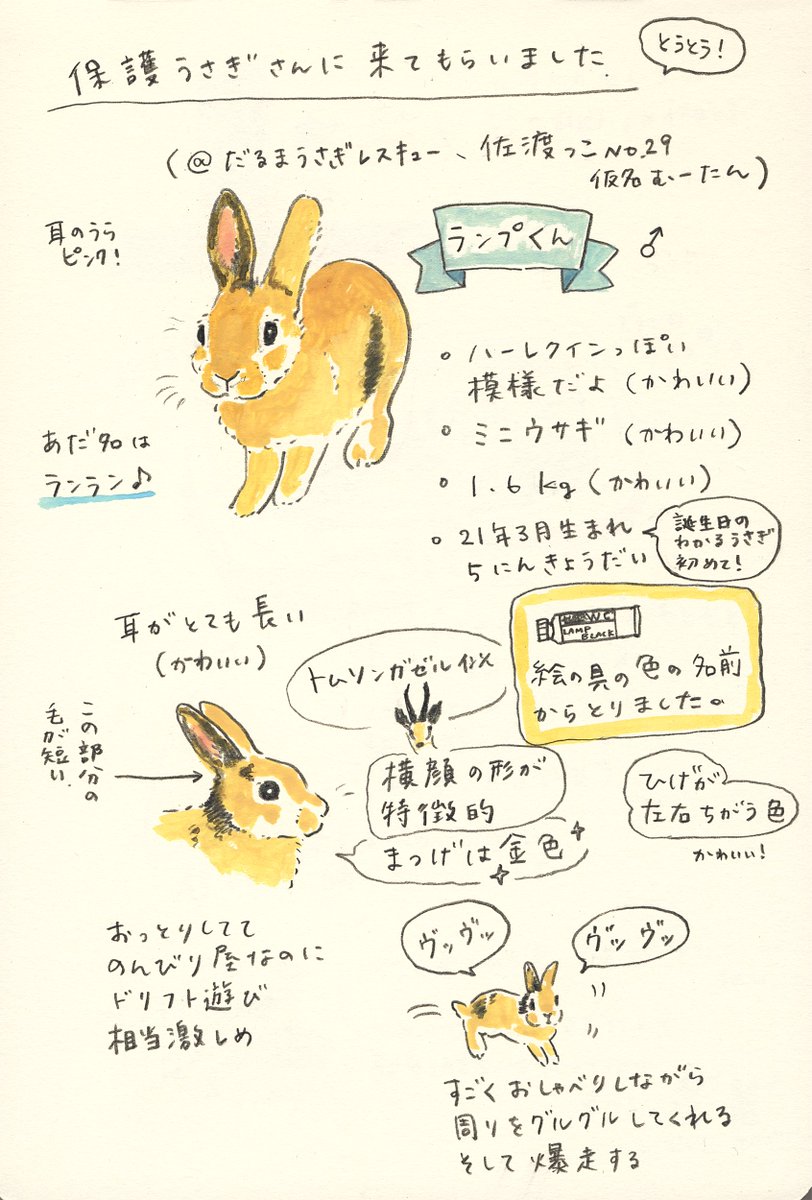 保護うさぎさんに来てもらいました
とうとう!
(@だるまうさぎレスキュー、佐渡っこNo.29
仮名むーたん)
耳のうら
ピンク!
ランプくん
♂
あだ名は
ランラン♪
○ハーレクインっぽい
模様だよ(かわいい)
○ミニウサギ(かわいい)
○1.6kg(かわいい)
○21年3月生まれ
5にんきょうだい
誕生日の
わかるうさぎ
初めて!
耳がとても長い
(かわいい)
トムソンガゼル似
W&C
LAMP
BLACK
絵の具の色の名前
からとりました。
この部分の
毛が短い
横顔の形が
特徴的
まつげは金色
ひげが
左右ちがう色
かわいい!
おっとりしてて
のんびり屋なのに
ドリフト遊び
相当激しめ
ヴッヴッ
ヴッヴッ
すごくおしゃべりしながら
周りをグルグルしてくれる
そして爆走する